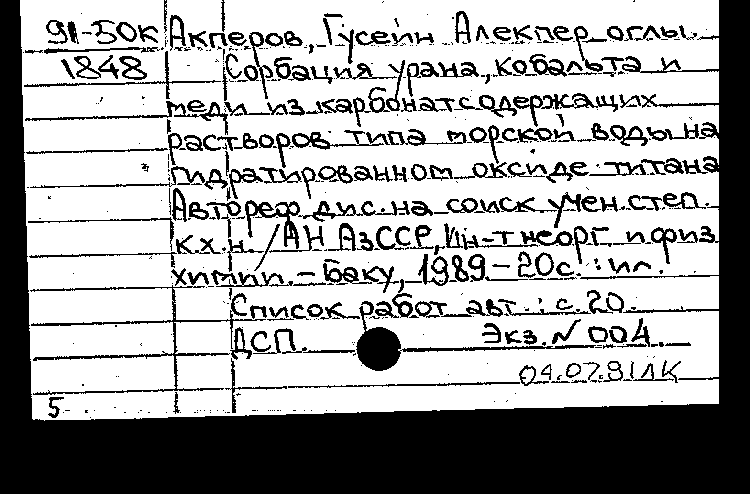 91-БОК Акперов, Гусейн Алекпер оглы.
1848 Сорбация урана, кобальта и
меди из карбонатсодержащих
растворов типа морской воды на
гидратированном оксиде титана
Автореф. дис. на соиск учен. степ.
к.х.н. / АН АзССР, Ин-т неорг. и физ
химии. – Баку, 1989 – 20с. : ил.
Список работ авт. : с. 20.
ДСП. Экз. N 004.
04.07.91 ЛК
5